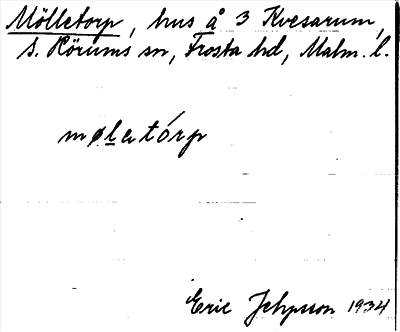 Mölletorp, hus å 3 Kvesarum,
S. Rörums sn, Frosta hd, Malm. l.
møletórp
Eric 1934